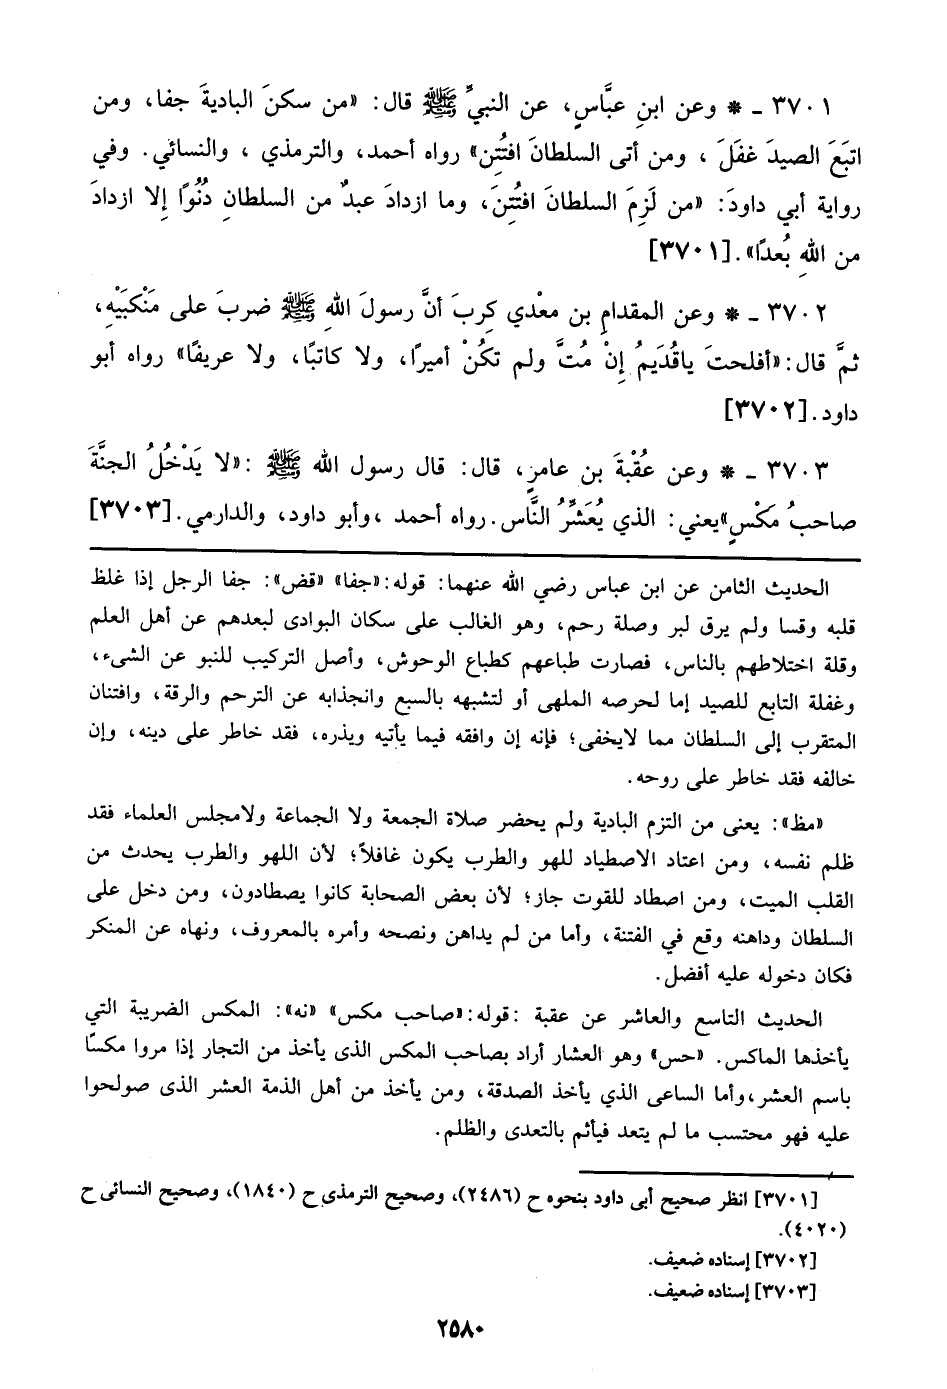 ٣٧٠١ ـ * وعن ابنِ عبَّاسٍ، عن النبيِّ ﷺ قال: «من سكنَ الباديةَ جفا، ومن
اتبَعَ الصيدَ غفَلَ ، ومن أتى السلطانَ افتُتِن» رواه أحمد، والترمذي ، والنسائي. وفي
رواية أبي داودَ: «من لَزِمَ السلطانَ افتُتِنَ، وما ازدادَ عبدٌ من السلطانِ دُنُوًا إلا ازدادَ
من اللهِ بُعدًا». [٣٧٠١]
٣٧٠٢ ـ * وعن المقدامِ بن معْدي كرِبَ أنَّ رسولَ اللهِ ﷺ ضربَ على مَنْكبَيْهِ،
ثمَّ قال: «أفلحتَ ياقُدَيمُ إنْ مُتَّ ولم تكُنْ أميرًا، ولا كاتبًا، ولا عريفًا» رواه أبو
داود. [٣٧٠٢]
٣٧٠٣ ـ * وعن عُقْبةَ بن عامرٍ، قال: قال رسول الله ﷺ :«لا يَدْخُلُ الجنَّةَ
صاحبُ مَكْسٍ»يعني: الذي يُعَشِّرُ النَّاس. رواه أحمد ،وأبو داود، والدارمي. [٣٧٠٣]
الحديث الثامن عن ابن عباس رضي الله عنهما: قوله:«جفا» «قض»: جفا الرجل إذا غلظ
قلبه وقسا ولم يرق لبر وصلة رحم، وهو الغالب على سكان البوادى لبعدهم عن أهل العلم
وقلة اختلاطهم بالناس، فصارت طباعهم كطباع الوحوش، وأصل التركيب للنبو عن الشىء،
وغفلة التابع للصيد إما لحرصه الملهى أو لتشبهه بالسبع وانجذابه عن الترحم والرقة، وافتنان
المتقرب إلى السلطان مما لايخفى؛ فإنه إن وافقه فيما يأتيه ويذره، فقد خاطر على دينه، وإن
خالفه فقد خاطر على روحه.
«مظ»: يعنى من التزم البادية ولم يحضر صلاة الجمعة ولا الجماعة ولامجلس العلماء فقد
ظلم نفسه، ومن اعتاد الاصطياد للهو والطرب يكون غافلاً؛ لأن اللهو والطرب يحدث من
القلب الميت، ومن اصطاد للقوت جاز؛ لأن بعض الصحابة كانوا يصطادون، ومن دخل على
السلطان وداهنه وقع في الفتنة، وأما من لم يداهن ونصحه وأمره بالمعروف، ونهاه عن المنكر
فكان دخوله عليه أفضل.
الحديث التاسع والعاشر عن عقبة :قوله:«صاحب مكس» «نه»: المكس الضريبة التي
يأخذها الماكس. «حس» وهو العشار أراد بصاحب المكس الذى يأخذ من التجار إذا مروا مكسًا
باسم العشر،وأما الساعى الذي يأخذ الصدقة، ومن يأخذ من أهل الذمة العشر الذى صولحوا
عليه فهو محتسب ما لم يتعد فيأثم بالتعدى والظلم.
[٣٧٠١] انظر صحيح أبى داود بنحوه ح (٢٤٨٦)، وصحيح الترمذى ح (١٨٤٠)، وصحيح النسائى ح
(٤٠٢٠).
[٣٧٠٢] إسناده ضعيف.
[٣٧٠٣] إسناده ضعيف.
٢٥٨٠